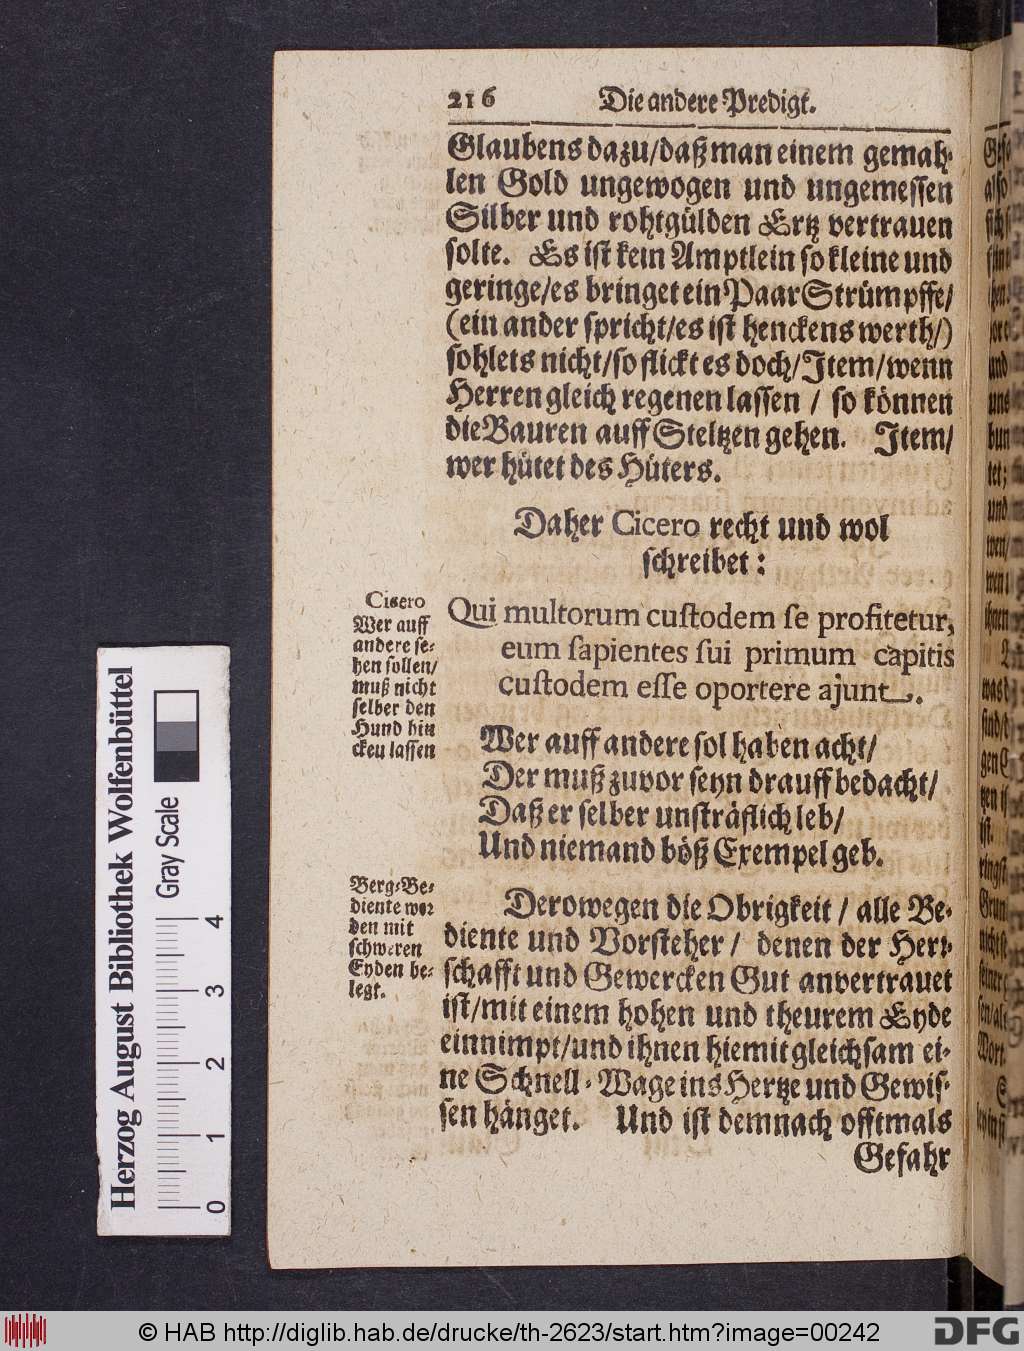 216 Die andere Predigt.
Glaubens dazu/daß man einem gemah-
len Gold ungewogen und ungemessen
Silber und rohtgülden Ertz vertrauen
solte. Es ist kein Amptlein so kleine und
geringe/es bringet ein Paar Strümpffe/
(ein ander spricht/es ist henckens werth/)
sohlets nicht/so flickt es doch/Item/wenn
Herren gleich regenen lassen / so können
die Bauren auff Steltzen gehen. Item/
wer hütet des Hüters.
Daher Cicero recht und wol
schreibet:
Cicero
Wer auff
andere se-
hen sollen/
muß nicht
selber den
Hund hin
cken lassen
Qui multorum custodem se profitetur,
eum sapientes sui primum capitis
custodem esse oportere ajunt.
Wer auff andere sol haben acht/
Der muß zuvor seyn drauff bedacht/
Daß er selber unsträflich leb/
Und niemand böß Exempel geb.
Berg-Be-
diente wer
den mit
schweren
Eyden be-
legt.
Derowegen die Obrigkeit / alle Be-
diente und Vorsteher / denen der Herr-
schafft und Gewercken Gut anvertrauet
ist/mit einem hohen und theurem Eyde
einnimpt/und ihnen hiemit gleichsam ei-
ne Schnell-Wage ins Hertze und Gewis-
sen hänget. Und ist demnach offtmals
Gefahr
Herzog August Bibliothek Wolfenbüttel
Gray Scale
0 1 2 3 4
© HAB http://diglib.hab.de/drucke/th-2623/start.htm?image=00242
DFG